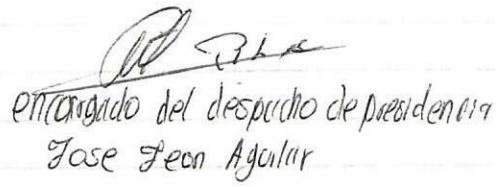 encargado del despacho de presidencia
Jose Leon Aguilar